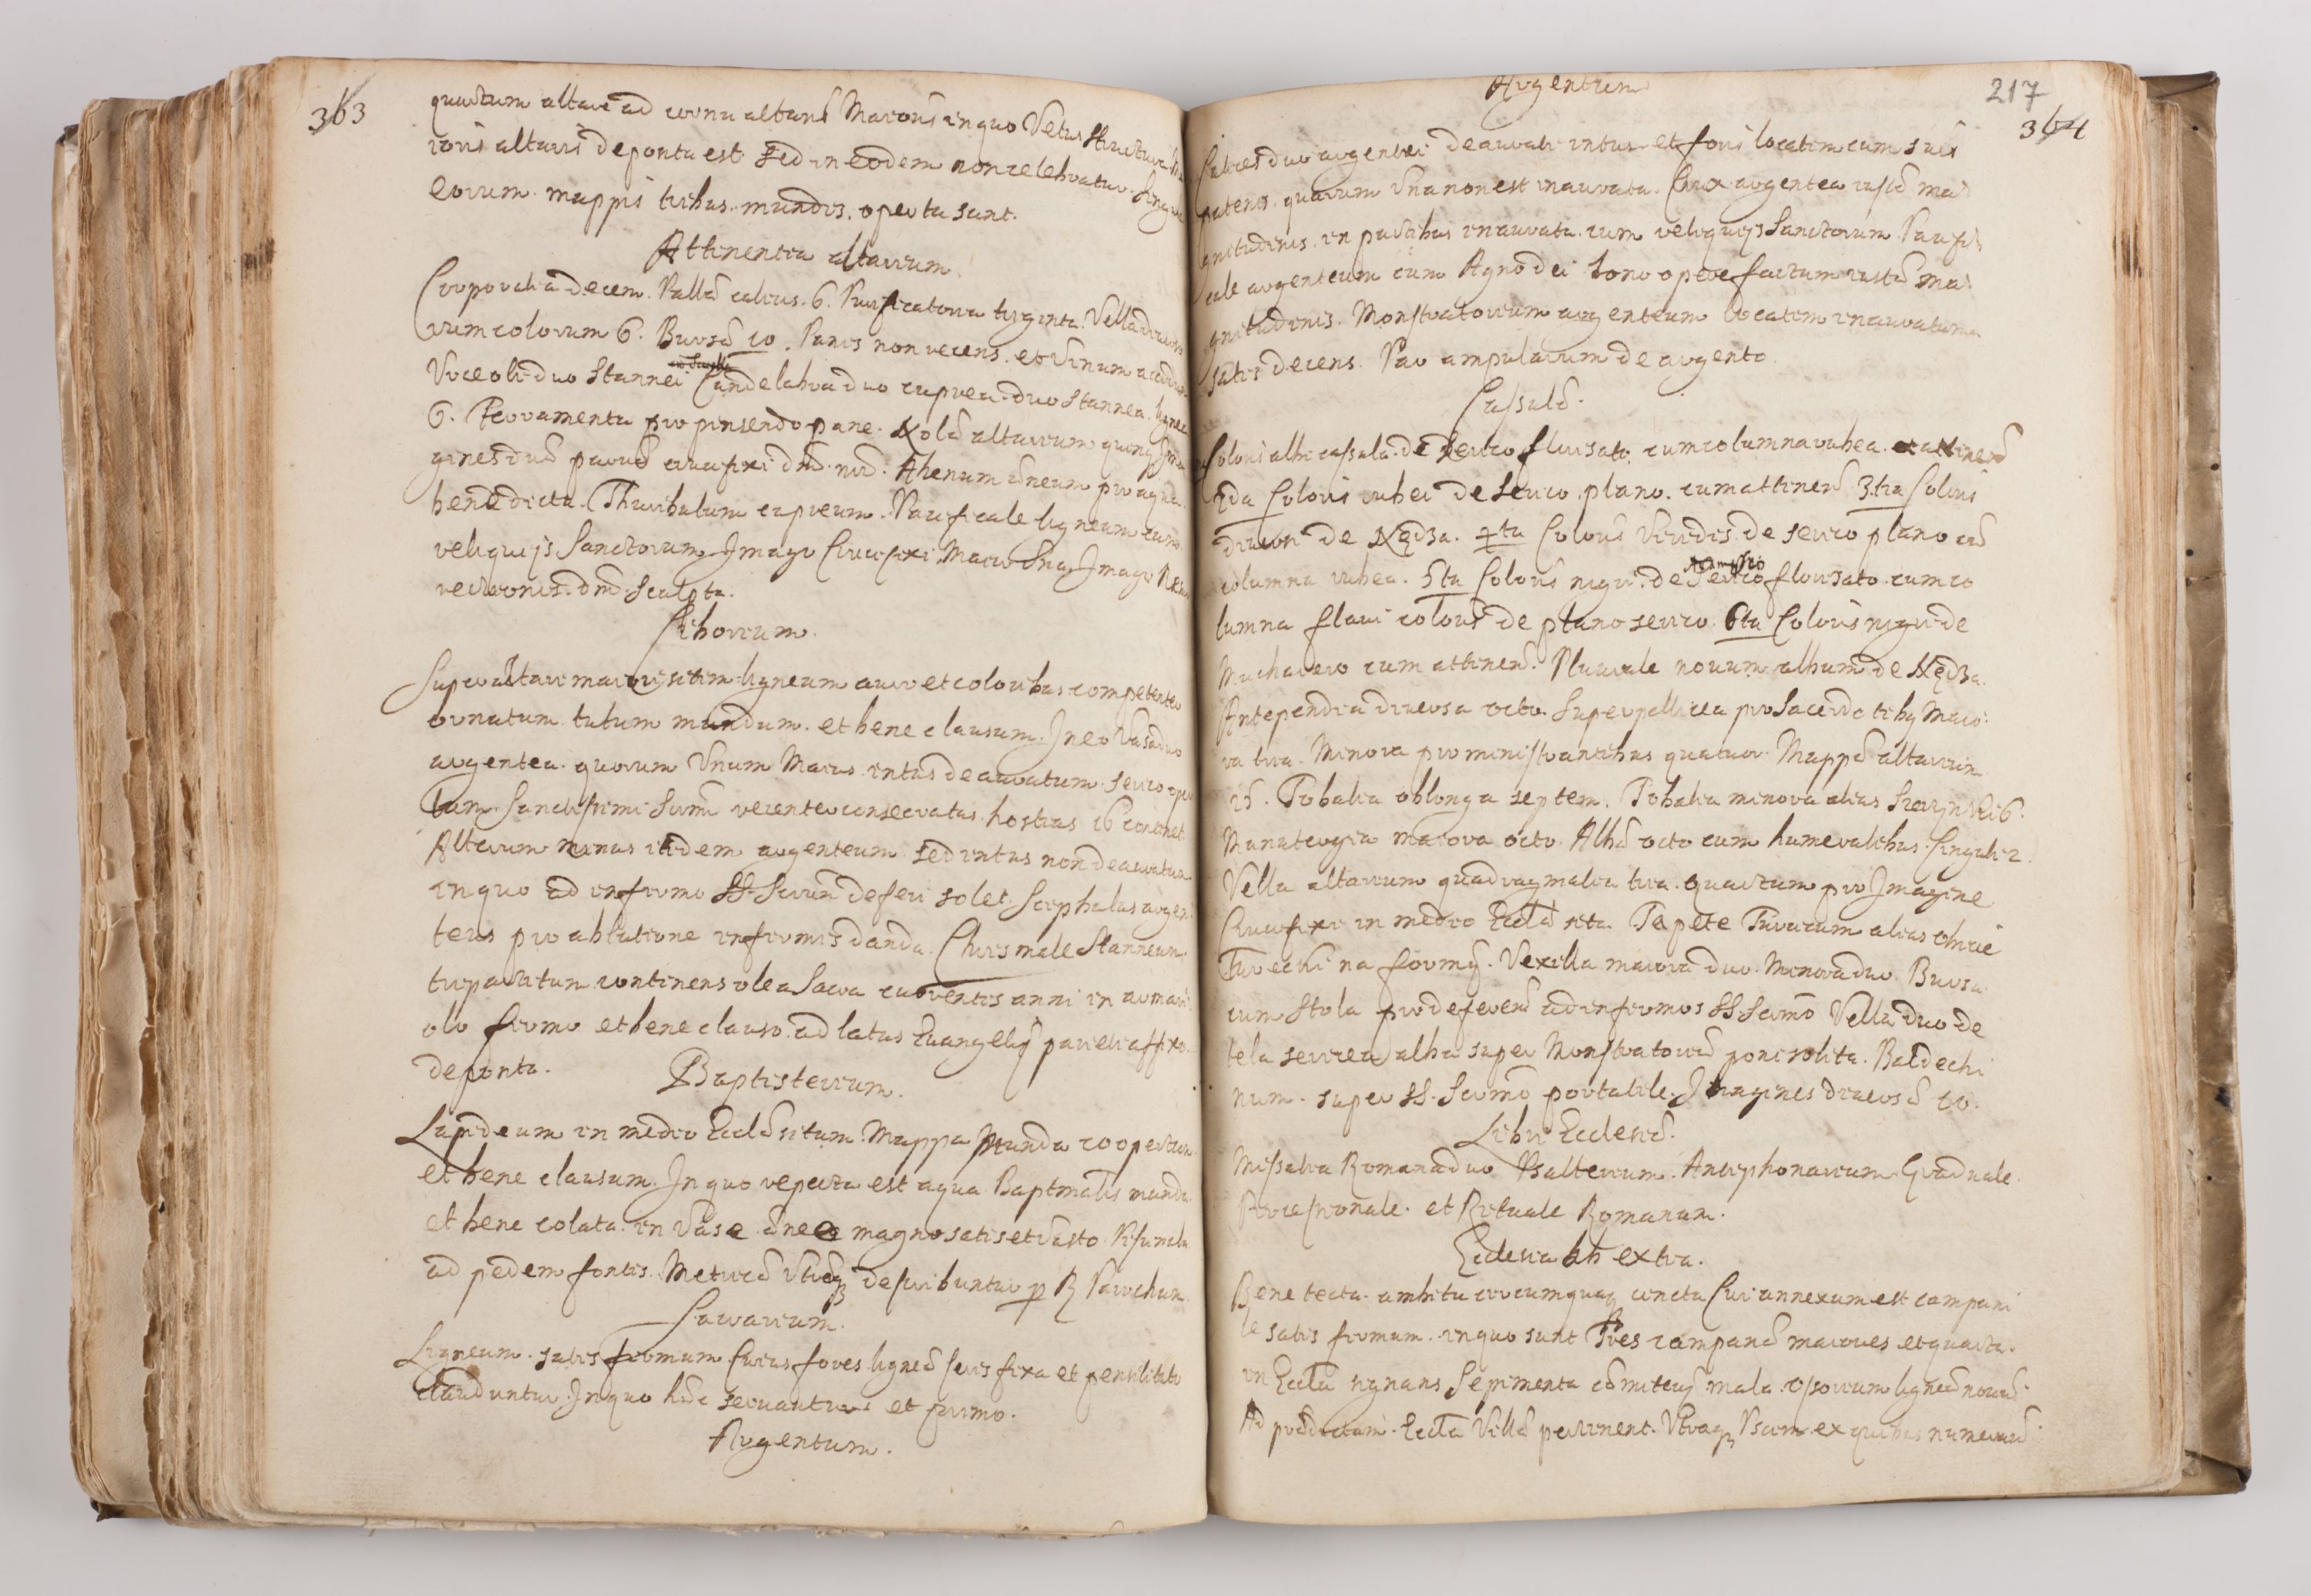 363
quartum altare ad cornu altaris Maioris in quo Vetus structura
ioris altaris deposita est. Sed in eodem non celebratur. Singula
eorum mappis tribus mundis operta sunt.
Attinentia altarium.
Corporalia decem. Pallæ calicis 6. Purificatoria triginta. Vella diverso
rum colorum 6. Bursæ 10. Panis non recens et Vinum
Urceoli duo stannei Candelabra duo cuprea duo stannea. lignea
6. Ferramenta pro pinsendo pane. Nolæ altarium quinque Ima
gines duæ parvæ crucifixi dni nri. Ahenum æneum pro aqua
benedicta. Thuribulum cupreum. Pacificale ligneum cum
reliquijs Sanctorum. Imago Crucifixi Maior una Imago Resur
rectionis dni sculpta.
Ciborium.
Super altare maiori situm ligneum auro et coloribus competenter
ornatum tutum mundum et bene clausum. In eo Vasa duo
argentea quorum Unum Maius intus deauratum serico oper
tum Sanctissimi Scrmi recenter consecratas hostias 16 continet.
Alterum minus itidem argenteum sed intus non deauratum
in quo ad infirmos SS. Scrum deferi solet. Scyphulus argen
teus pro ablutione infirmis danda. Chrismale stanneum
tripartitum continens olea Sacra currentis anni in armari
olo firmo et bene clauso ad latus Evangelij parieti affixo
deposita.
Baptisterium.
Lapideum in medio Ecclæ situm. Mappa munda coopertum
et bene clausum. In quo reperta est aqua Baptmalis munda
et bene colata in Vase æneo magno satis et vasto. Piscinula
ad pedem fontis. Metricæ utriq describuntur p R Parochum.
Sacrarium.
Ligneum satis firmum Cuius fores ligneæ seris fixa et pensili tuto
clauduntur. In quo hæc servantur et firmo.
Argentum.
217
364
Argentum
Calices duo argentei deaurati intus et foris locatim cum suis
patenis quarum Una non est inaurata. Crux argentea iustæ ma
gnitudinis in partibus inaurata cum reliquijs Sanctorum. Pacifi
cale argenteum cum Agno dei bono opere factum iustæ ma
gnitudinis. Monstratorium argenteum locatim inauratum
satis decens. Par ampularum de argento.
Cassulæ.
Coloris albi cassula de serico florisato cum columna rubea et attinen
2da Coloris rubei de serico plano cum attinen 3tia Coloris
de Nędza. 4ta Coloris Viridis de serico plano cu
columna rubea. 5ta Coloris nigri de Serico florisato cum co
lumna flavi coloris de plano serico. 6ta Coloris nigri de
Muchaiero cum attinen. Pluviale novum album de Nędza.
Antependia diversa octo. Superpellicea pro Sacerdotibq Maio:
ra tria. Minora pro ministrantibus quatuor. Mappæ altarium
25. Tobalia oblonga septem. Tobalia minora alias 6.
Manutergia maiora octo. Albæ octo cum humeralibus singulis.
Vella altarium quadragmalia tria quartum pro Imagine
Crucifixi in medio Ecclæ sita. Tapete Turcicum alias
Turecki na formy. Vexilla maiora duo. Minora duo. Bursa
cum stola pro deferen ad infirmos SS. Scrmo Vella duo de
tela sericea alba super Monstratoriu poni solita. Baldechi
num super SS. Scrmo portatile. Imagines diversæ 10.
Libri Ecclesiæ.
Missalia Romana duo Psalterium. Antiphonarium. Graduale.
Processionale et Rituale Romanum.
Ecclesia ab extra.
Bene tecta ambitu circumquaq cincta Cui annexum est campani
le satis firmum in quo sunt Tres campanæ maiores et quarta
in Eccla signans Sepimenta cæmiterij mala. Ossorium ligneu novu
Ad prædictam Eccla Villæ pertinent. Utraq Uscim ex quibus numeran